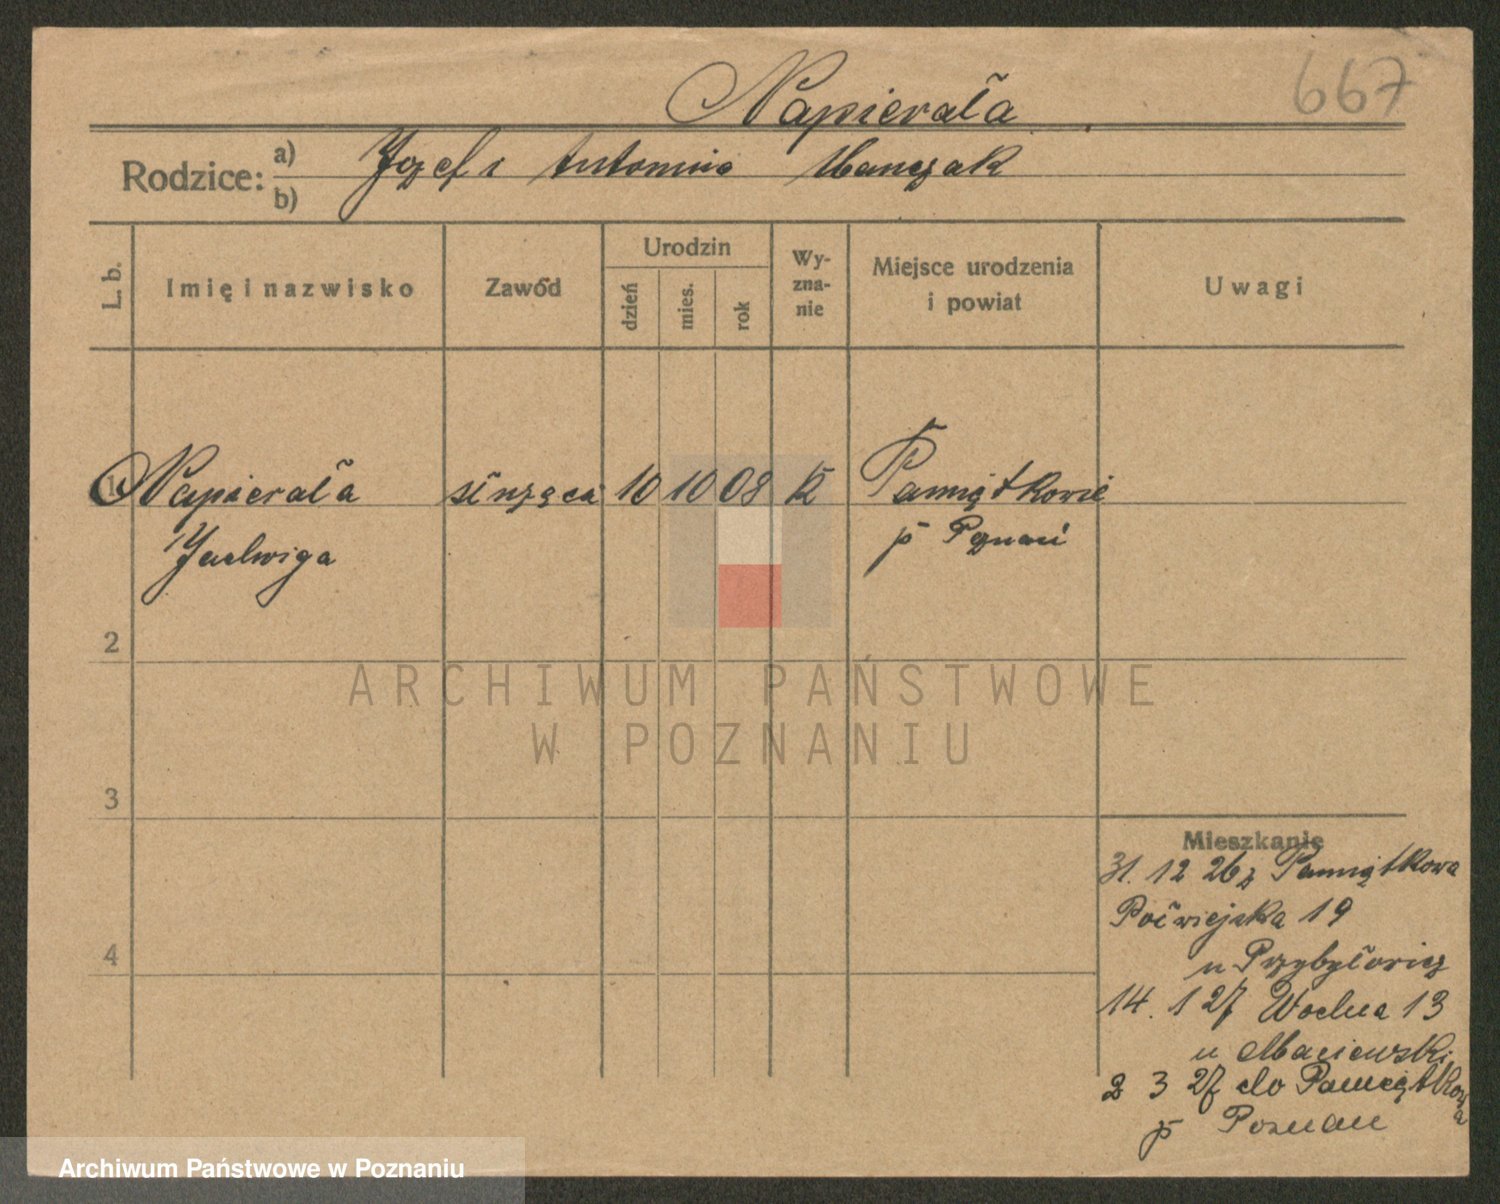 Napierała
667
Rodzice: a) Józef i Antonina Mańczak
b)
L. b.
Imię i nazwisko
Zawód
Urodzin
dzień
mies.
rok
Wy-
zna-
nie
Miejsce urodzenia
i powiat
Uwagi
1 Napierała służąca 10 10 08 k Pamiątkowie
Jadwiga p Poznań
2
3
4
Mieszkanie
31. 12 26 z Pamiątkowa
Półwiejska 19
u Przybyłowicz
14. 1 27 Wodna 13
u Maciewski
2 3 27 do Pamiątkowa
p Poznań
ARCHIWUM PAŃSTWOWE
W POZNANIU
Archiwum Państwowe w Poznaniu